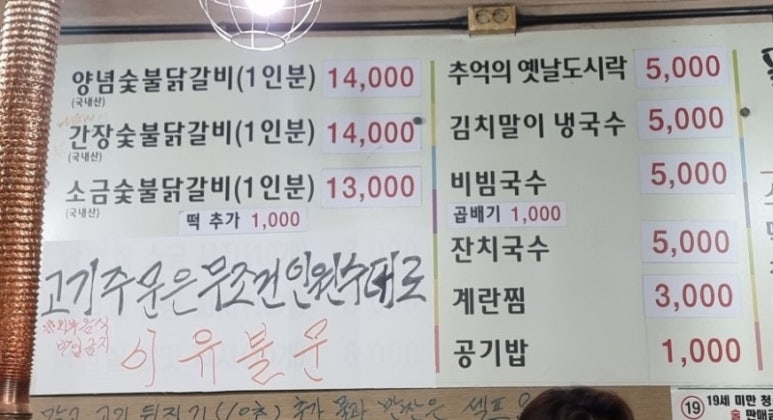 양념숯불닭갈비(1인분) 14,000
(국내산)
간장숯불닭갈비(1인분) 14,000
(국내산)
소금숯불닭갈비(1인분) 13,000
(국내산)
떡 추가 1,000
고기주문은 무조건 인원수대로
※외부음식
반입금지
이유불문
추억의 옛날도시락 5,000
김치말이 냉국수 5,000
비빔국수 5,000
곱배기 1,000
잔치국수 5,000
계란찜 3,000
공기밥 1,000
고기 뒤집기(10초) 추가 물과 반찬은 셀프
19 19세 미만 청
술 판매금